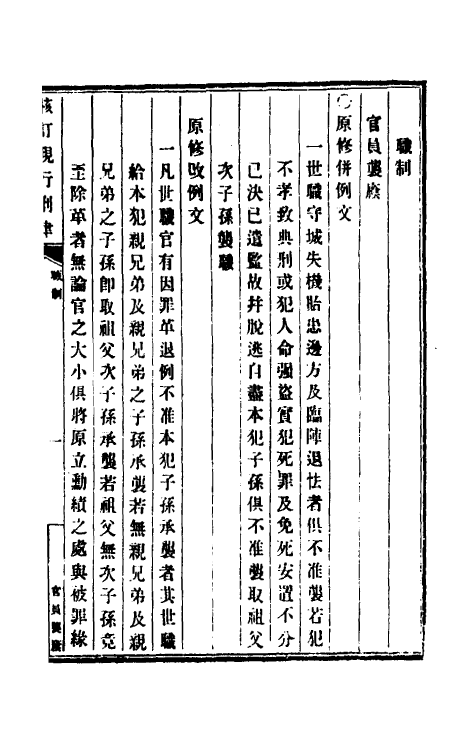 職制
官員襲廕
○原修併例文
一世職守城失機貽患邊方及臨陣退怯者俱不准襲若犯
不孝致典刑或犯人命强盜實犯死罪及免死安置不分
已決已遣監故幷脫逃自盡本犯子孫俱不准襲取祖父
次子孫襲職
原修改例文
一凡世職官有因罪革退例不准本犯子孫承襲者其世職
給本犯親兄弟及親兄弟之子孫承襲若無親兄弟及親
兄弟之子孫卽取祖父次子孫承襲若祖父無次子孫竟
至除革者無論官之大小俱將原立勳績之處與被罪緣
核訂現行刑律
職制
一
官員襲廕